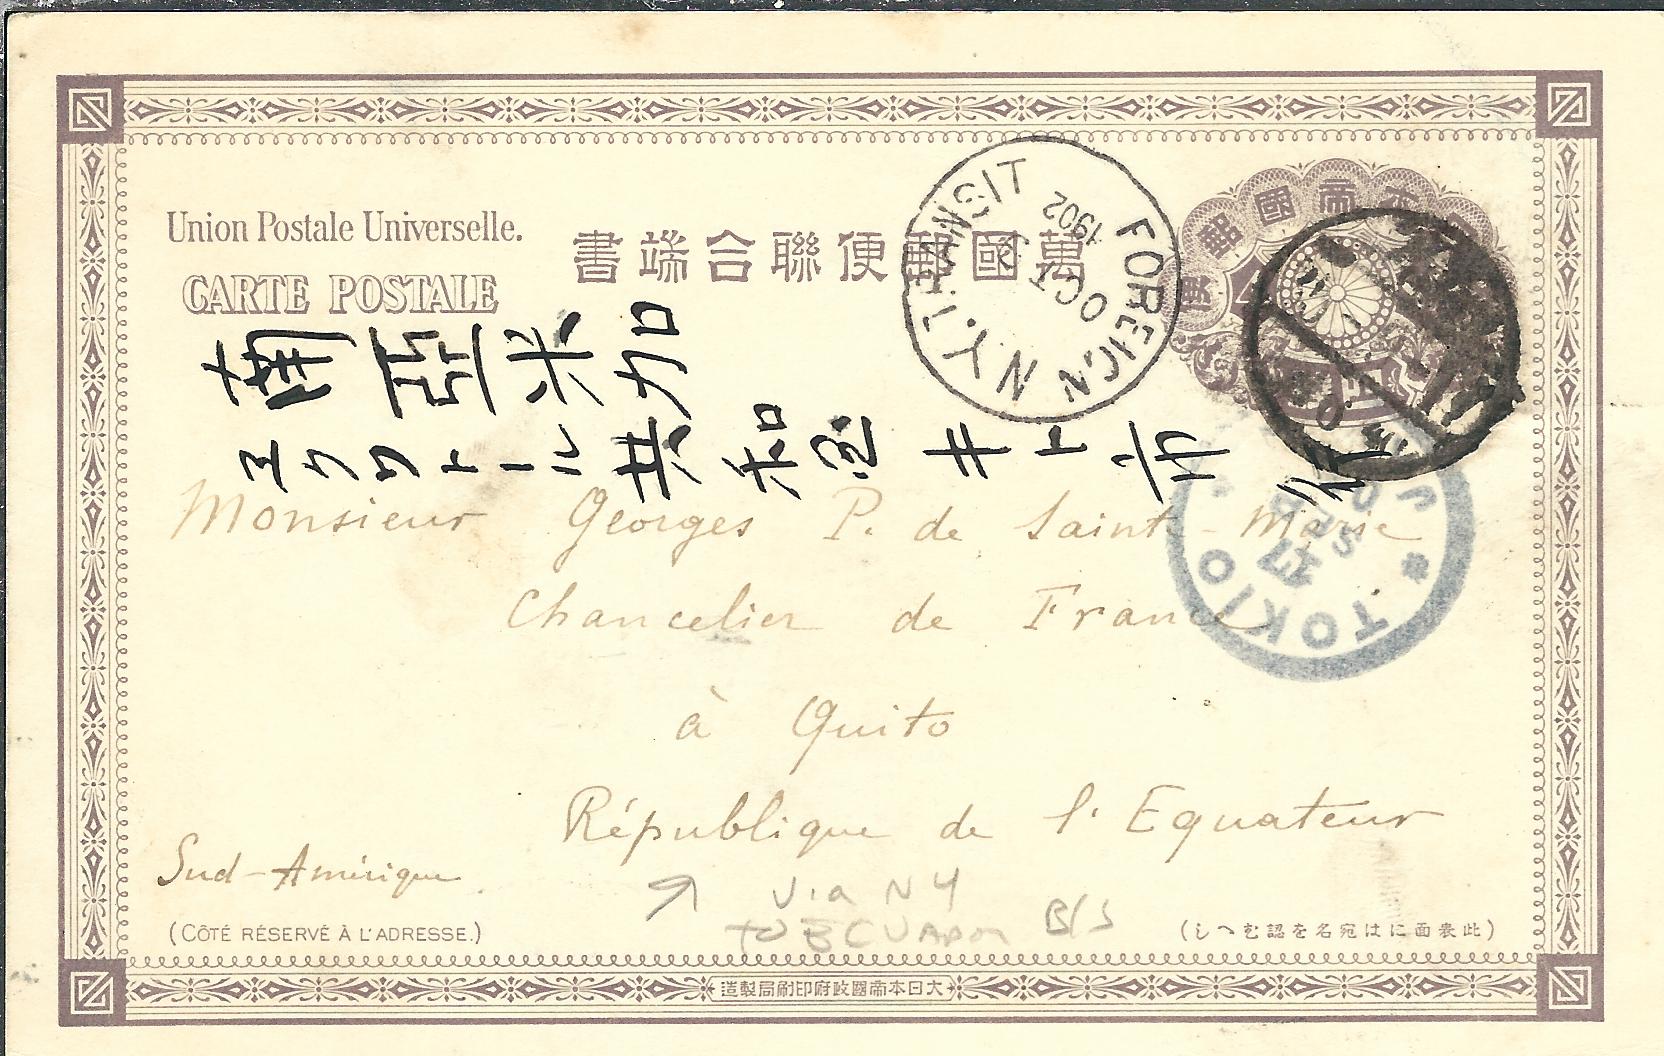 Union Postale Universelle.
CARTE POSTALE
書端合聯便郵國萬
N.Y. TRANSIT
FOREIGN
OCT
1902
南亞米加
エクワトール共和国キト市行
Monsieur Georges P. de Saint-Marie
Chancelier de France
à Quito
République de l'Equateur
Sud-Amérique
TOKIO
Via NY
to ECUADOR B/S
(CÔTÉ RÉSERVÉ À L'ADRESSE.)
(しへむ認を名宛はに面表此)
造製局刷印府政國帝本日大